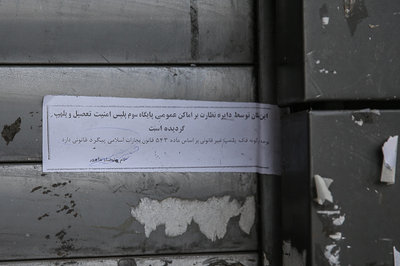 این مکان توسط دایره نظارت بر اماکن عمومی پایگاه سوم پلیس امنیت تعطیل و پلمپ
گردیده است
توجه: هرگونه فک پلمپ غیر قانونی بر اساس ماده ۵۴۳ قانون مجازات اسلامی پیگرد قانونی دارد